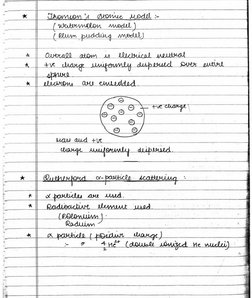 * Thomson's atomic model :-
(Watermelon model)
(Plum pudding model)
* Overall atom is electrical neutral
* +ve charge uniformly dispersed over entire
sphere
* electrons are embedded
+ve charge
mass and +ve
charge uniformly dispersed.
* Rutherford α-particle scattering :
* α particles are used.
* Radioactive element used
(Polonium)
Radium
* α particle (positive charge)
:- ⁴₂He²⁺ (double ionized He nuclei)